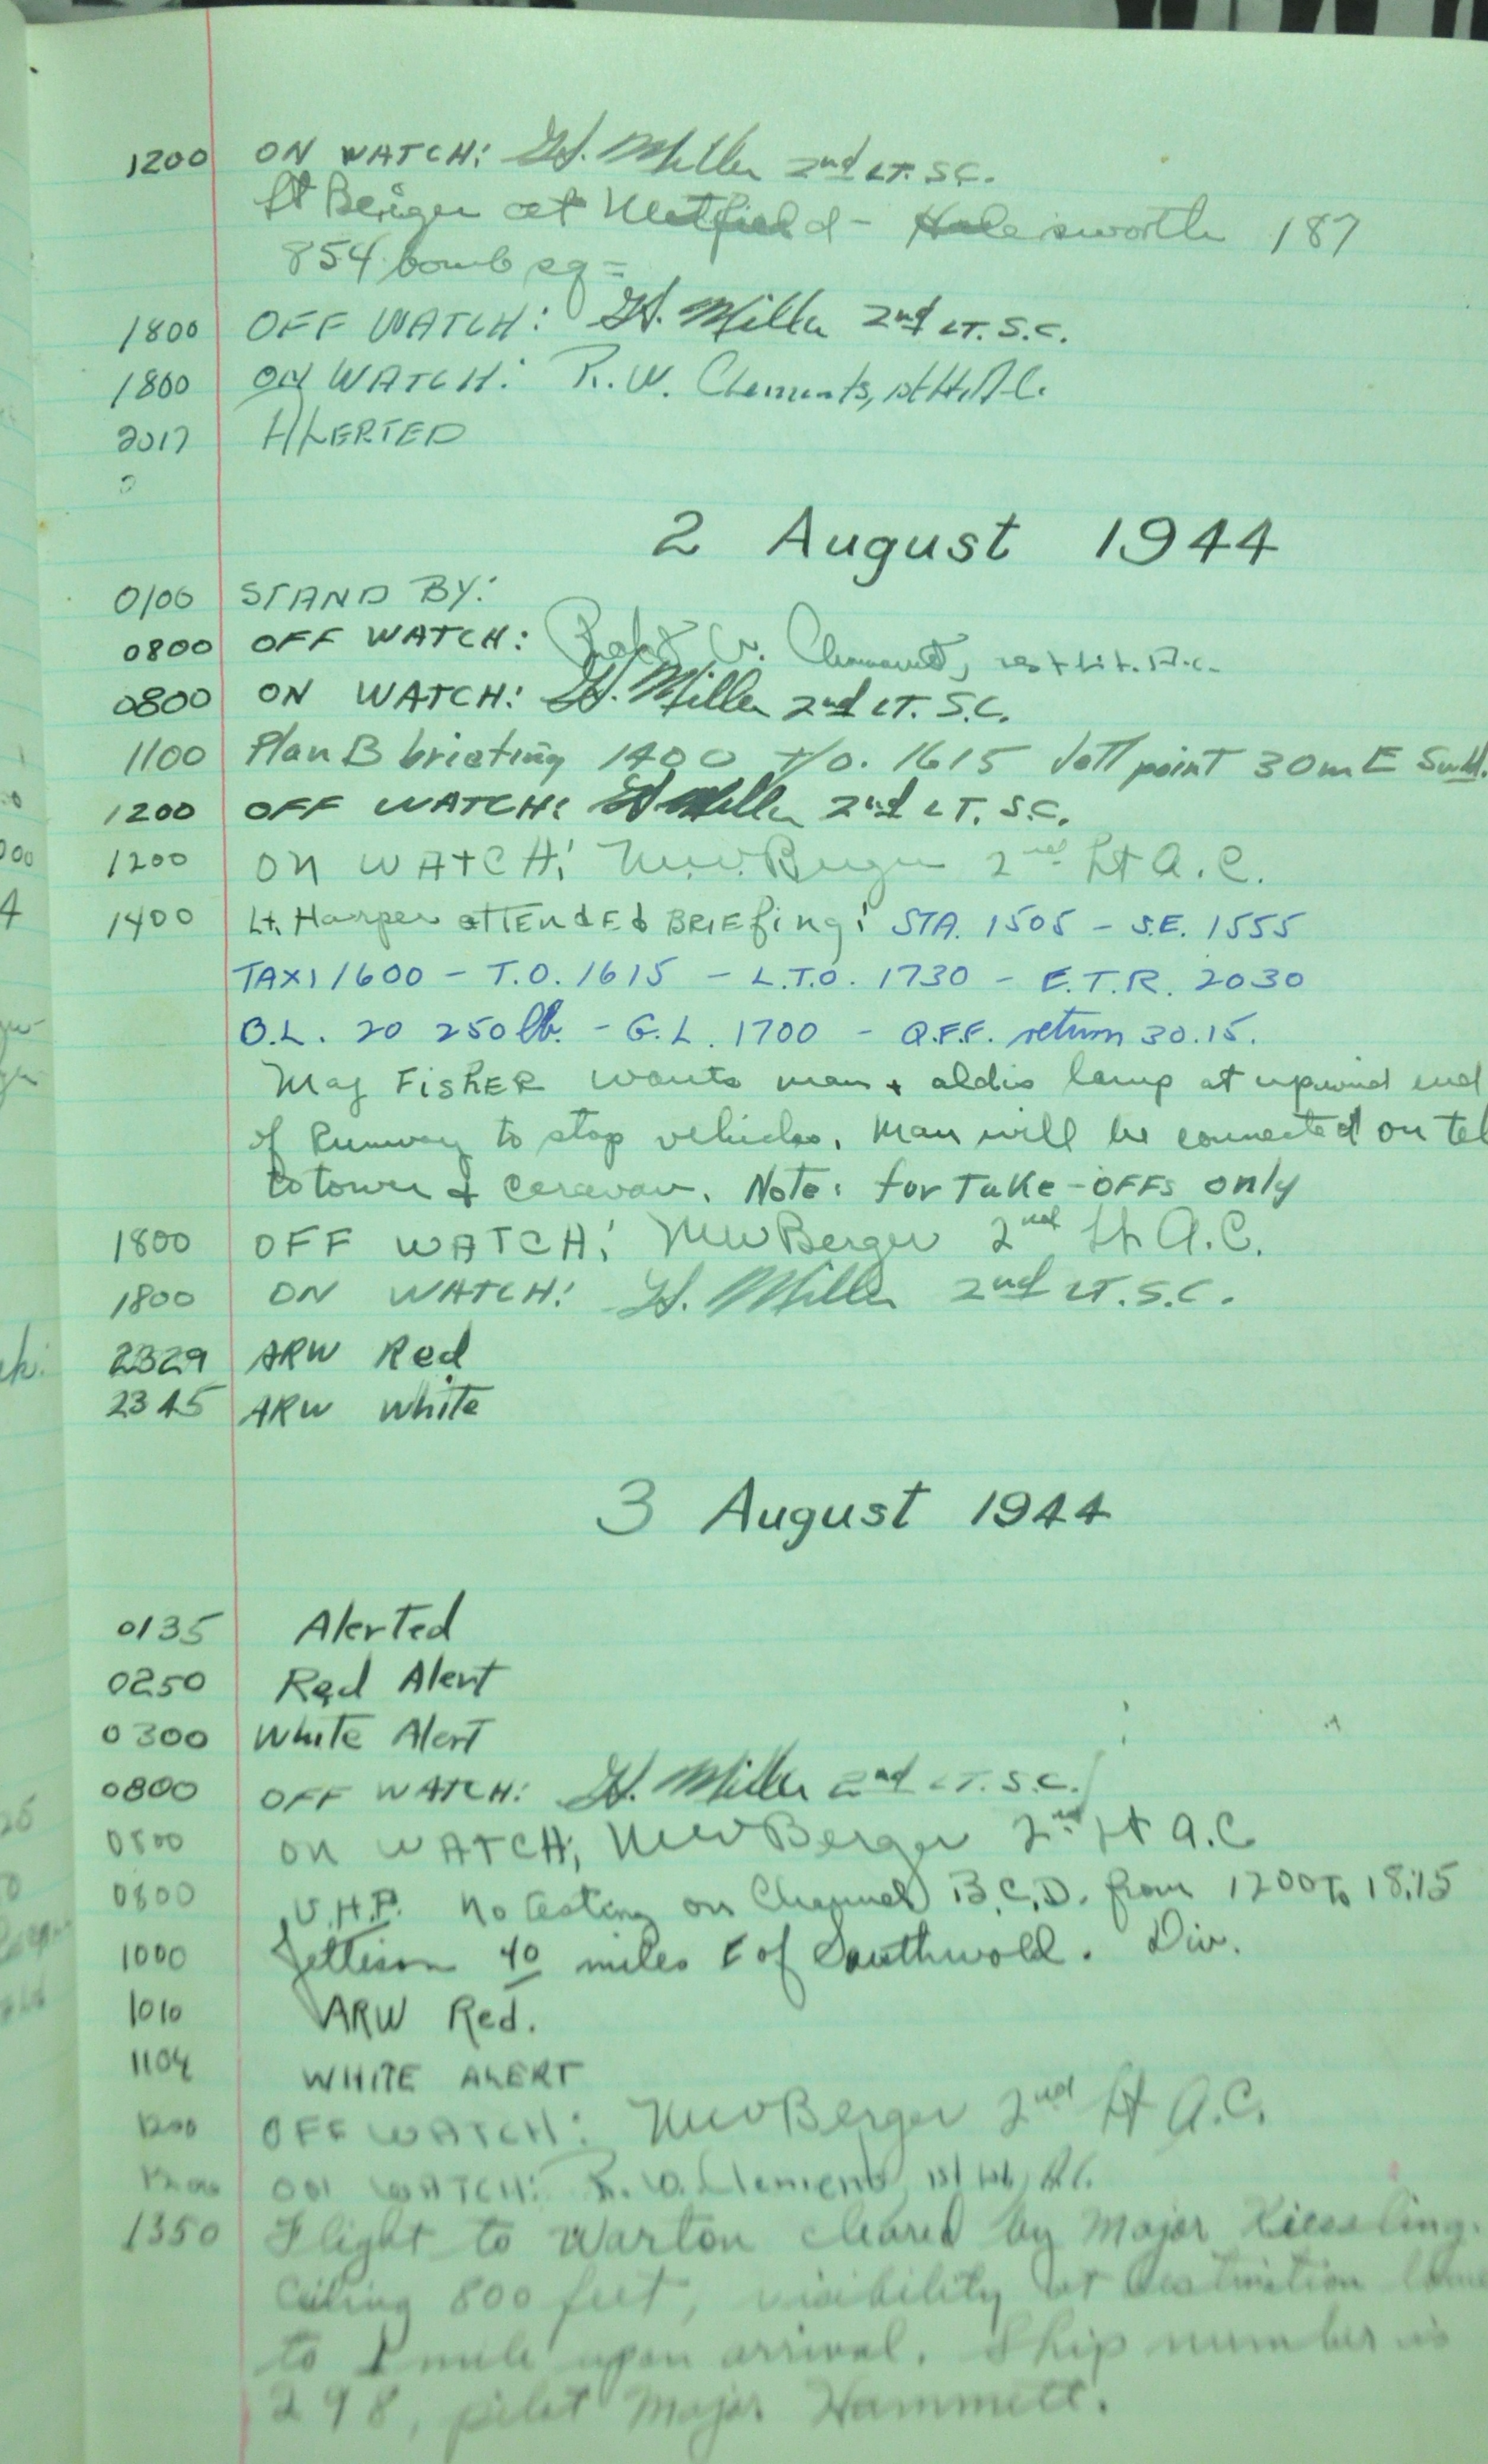 1200 ON WATCH: H. Miller 2nd LT. S.C.
Lt Berger at Metfield - Halesworth 187
854 bomb sq =
1800 OFF WATCH: H. Miller 2nd LT. S.C.
1800 ON WATCH: R. W. Clements, 1st Lt. A.C.
2017 ALERTED
2 August 1944
0100 STAND BY:
0800 OFF WATCH: Robt W. Clements, 1st Lt. A.C.
0800 ON WATCH: H. Miller 2nd LT. S.C.
1100 Plan B briefing 1400 T/o. 1615 Jett point 30m E Swld.
1200 OFF WATCH: H Miller 2nd LT. S.C.
1200 ON WATCH: MWBerger 2nd Lt A.C.
1400 Lt. Harper ATTENdEd BRIEfing: STA. 1505 - S.E. 1555
TAXI 1600 - T.O. 1615 - L.T.O. 1730 - E.T.R. 2030
B.L. 20 250 lb. - G.L. 1700 - Q.F.F. return 30.15.
Maj FisHER wants man + aldis lamp at upwind end
of Runway to stop vehicles. Man will be connected on tel
to tower & caravan. Note: for Take-OFFs only
1800 OFF WATCH: MWBerger 2nd Lt A.C.
1800 ON WATCH: H. Miller 2nd LT. S.C.
2329 ARW Red
2345 ARW White
3 August 1944
0135 Alerted
0250 Red Alert
0300 White Alert
0800 OFF WATCH: H. Miller 2nd LT. S.C.
0800 ON WATCH: MWBerger 2nd Lt A.C
0800 V.H.F. No testing on Channel B.C.D. from 1200 To 18:15
1000 Jettison 40 miles E of Southwold. Div.
1010 ARW Red.
1104 WHITE ALERT
1200 OFF WATCH: MWBerger 2nd Lt A.C.
1200 ON WATCH: R. W. Clements, 1st Lt, A.C.
1350 Flight to Warton cleared by Major Kiessling.
Ceiling 800 feet, visibility at destination
to 1 mile upon arrival. Ship number is
298, pilot Major Hammett.